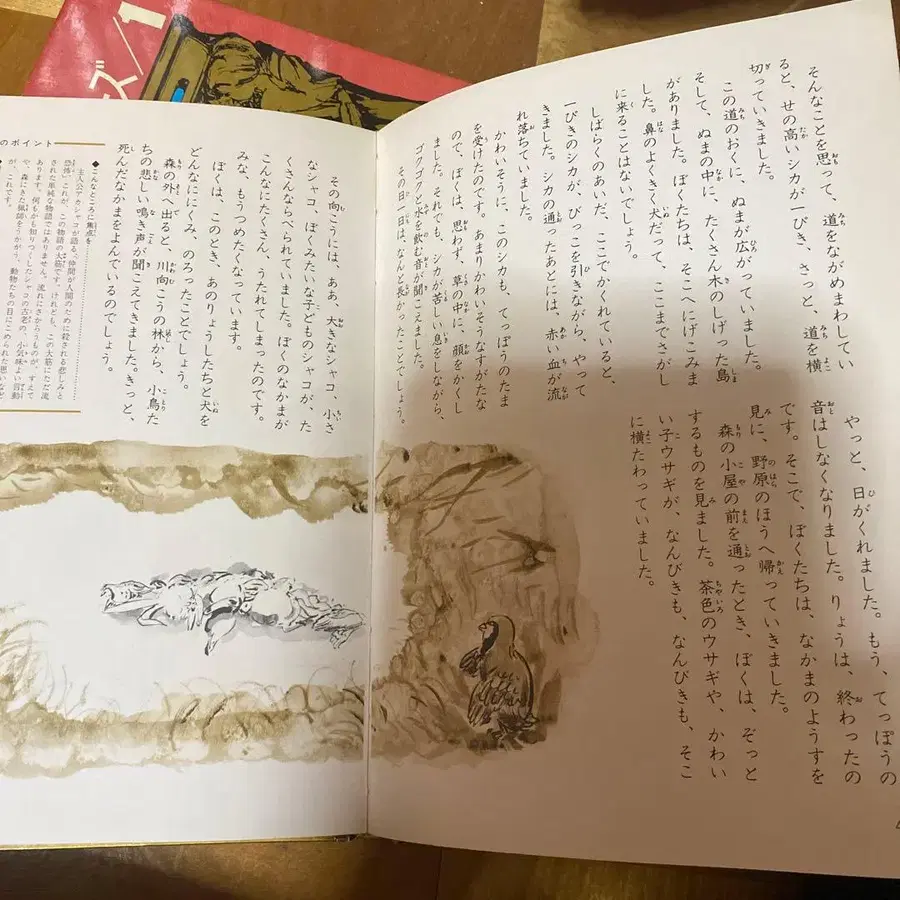 そんなことを思って、道をながめまわしてい
ると、せの高いシカが一ぴき、さっと、道を横
切っていきました。
この道のおくに、ぬまが広がっていました。
そして、ぬまの中に、たくさん木のしげった島
がありました。ぼくたちは、そこへにげこみま
した。鼻のよくきく犬だって、ここまでさがし
に来ることはないでしょう。
しばらくのあいだ、ここでかくれていると、
一ぴきのシカが、びっこを引きながら、やって
きました。シカの通ったあとには、赤い血が流
れ落ちていました。
かわいそうに、このシカも、てっぽうのたま
を受けたのです。あまりかわいそうなすがたな
ので、ぼくは、思わず、草の中に、顔をかくし
ました。それでも、シカが苦しい息をしながら、
ゴクゴクと水を飲む音が聞こえました。
その日一日は、なんと長かったことでしょう。
やっと、日がくれました。もう、てっぽうの
音はしなくなりました。りょうは、終わったの
です。そこで、ぼくたちは、なかまのようすを
見に、野原のほうへ帰っていきました。
森の小屋の前を通ったとき、ぼくは、ぞっと
するものを見ました。茶色のウサギや、かわい
い子ウサギが、なんびきも、なんびきも、そこ
に横たわっていました。
その向こうには、ああ、大きなシャコ、小さ
なシャコ、ぼくみたいな子どものシャコが、た
くさんならべられていました。ぼくのなかまが
こんなにたくさん、うたれてしまったのです。
みな、もうつめたくなっています。
ぼくは、このとき、あのりょうしたちと犬を
どんなににくみ、のろったことでしょう。
森の外へ出ると、川向こうの林から、小鳥た
ちの悲しい鳴き声が聞こえてきました。きっと、
死んだなかまをよんでいるのでしょう。
のポイント
◆こんなところに焦点を
主人公アカシャコが語る「仲間が人間のために殺される悲しみと
恐怖」これが、この物語の大筋です。けれども、この大筋にただ流
された単純な物語ではありません。流れにさからうものが、すえて
あります。何もかも知りつくしたシャコの古老の、小気味よい言動
が、森にきた猟師をうかがう、動物たちの目にこめられた思いなど
ズ/1